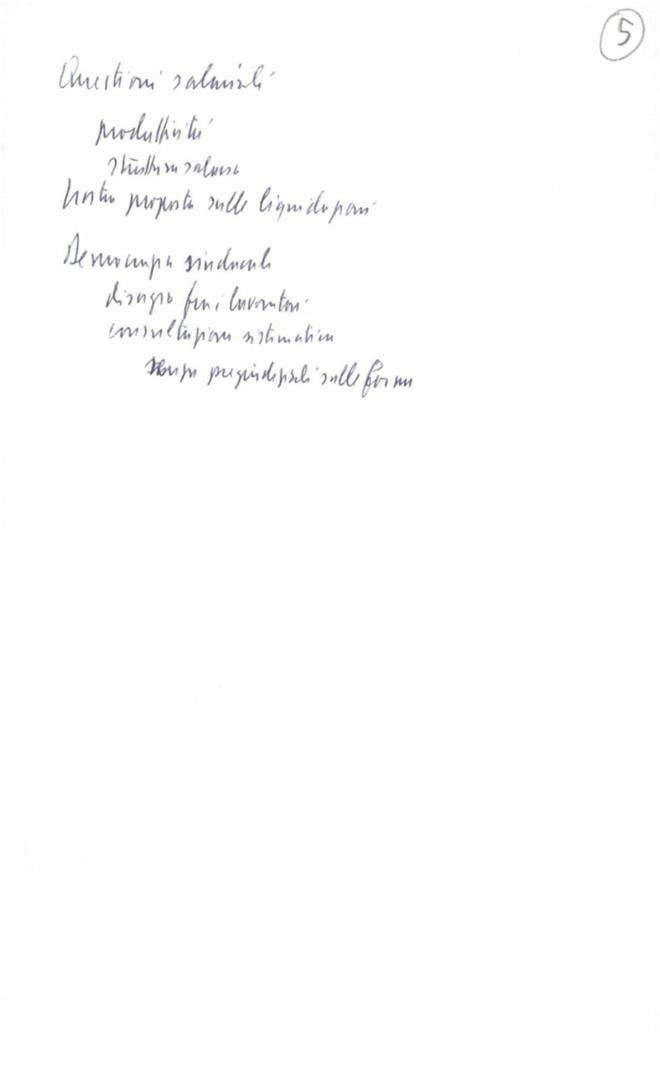 5
Questioni salariali
produttività
struttura salario
nostra proposta sulle liquidazioni
Democrazia sindacale
disagio fra i lavoratori
consultazione sistematica
senza pregiudiziali sulle forme